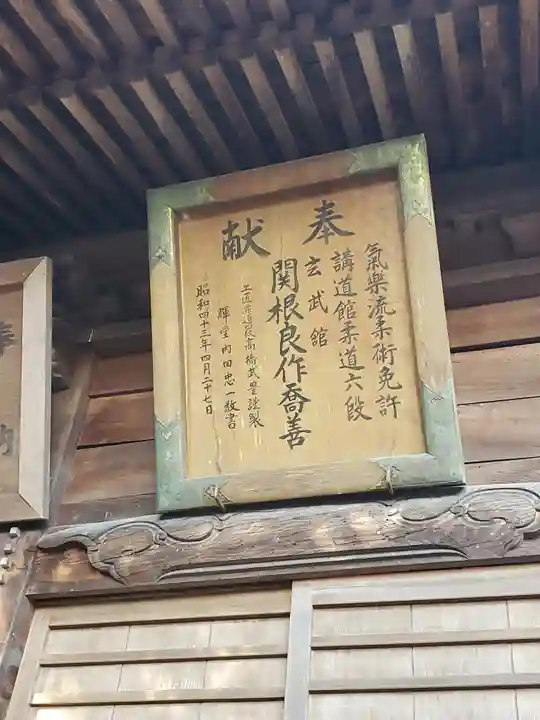 奉献
氣樂流柔術免許
講道館柔道六段
玄武館
関根良作喬善
髙橋武重謹製
輝堂内田忠一敬書
昭和四十三年四月二十七日
奉
納